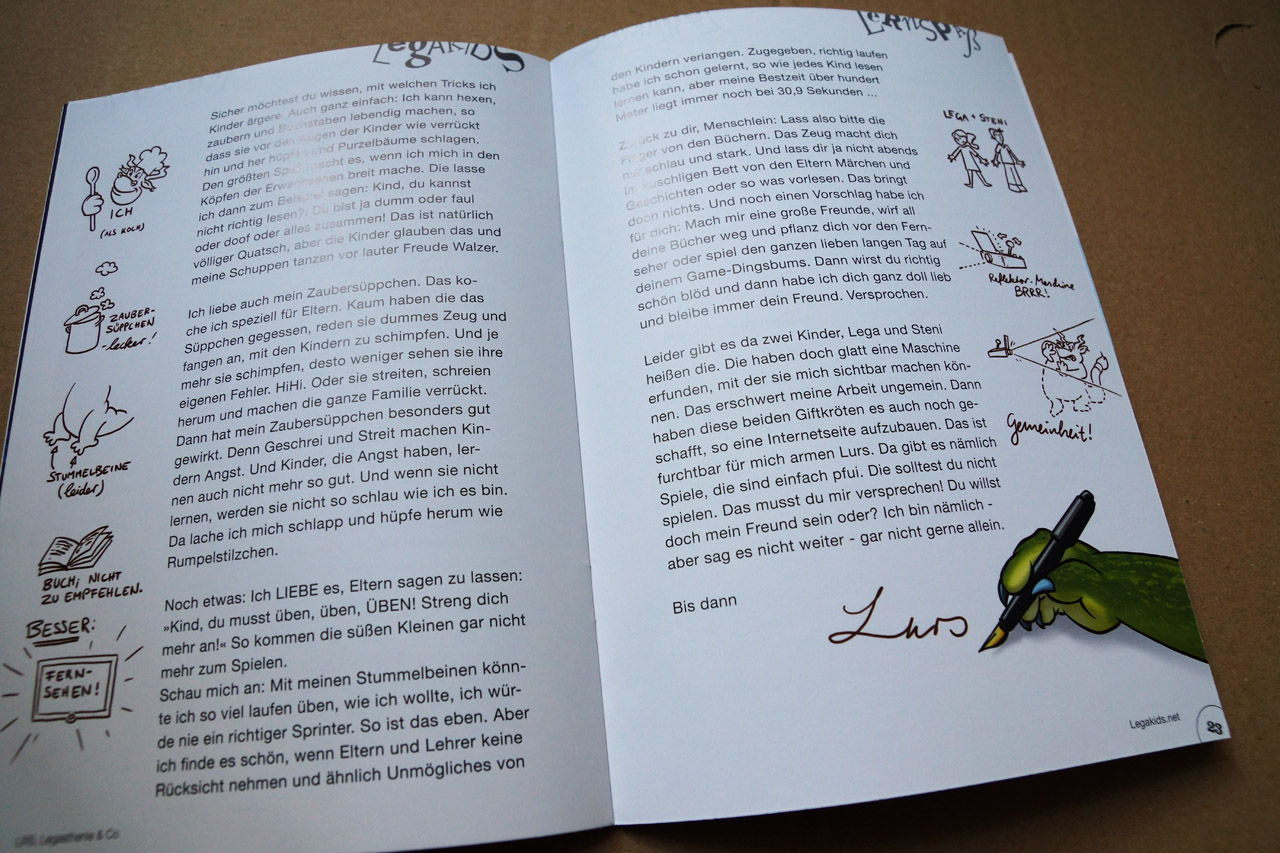 LegaKids
Sicher möchtest du wissen, mit welchen Tricks ich
Kinder ärgere. Auch ganz einfach: Ich kann hexen,
zaubern und Buchstaben lebendig machen, so
dass sie vor den Augen der Kinder wie verrückt
hin und her hüpfen und Purzelbäume schlagen.
Den größten Spaß macht es, wenn ich mich in den
Köpfen der Erwachsenen breit mache. Die lasse
ich dann zum Beispiel sagen: Kind, du kannst
nicht richtig lesen?! Du bist ja dumm oder faul
oder doof oder alles zusammen! Das ist natürlich
völliger Quatsch, aber die Kinder glauben das und
meine Schuppen tanzen vor lauter Freude Walzer.
Ich liebe auch mein Zaubersüppchen. Das ko-
che ich speziell für Eltern. Kaum haben die das
Süppchen gegessen, reden sie dummes Zeug und
fangen an, mit den Kindern zu schimpfen. Und je
mehr sie schimpfen, desto weniger sehen sie ihre
eigenen Fehler. HiHi. Oder sie streiten, schreien
herum und machen die ganze Familie verrückt.
Dann hat mein Zaubersüppchen besonders gut
gewirkt. Denn Geschrei und Streit machen Kin-
dern Angst. Und Kinder, die Angst haben, ler-
nen auch nicht mehr so gut. Und wenn sie nicht
lernen, werden sie nicht so schlau wie ich es bin.
Da lache ich mich schlapp und hüpfe herum wie
Rumpelstilzchen.
Noch etwas: Ich LIEBE es, Eltern sagen zu lassen:
»Kind, du musst üben, üben, ÜBEN! Streng dich
mehr an!« So kommen die süßen Kleinen gar nicht
mehr zum Spielen.
Schau mich an: Mit meinen Stummelbeinen könn-
te ich so viel laufen üben, wie ich wollte, ich wür-
de nie ein richtiger Sprinter. So ist das eben. Aber
ich finde es schön, wenn Eltern und Lehrer keine
Rücksicht nehmen und ähnlich Unmögliches von
ICH
(ALS KOCH)
ZAUBER-
SÜPPCHEN
-lecker!
STUMMELBEINE
(leider)
BUCH; NICHT
ZU EMPFEHLEN.
BESSER:
FERN-
SEHEN!
LRS, Legasthenie & Co
LERNSPAß
den Kindern verlangen. Zugegeben, richtig laufen
habe ich schon gelernt, so wie jedes Kind lesen
lernen kann, aber meine Bestzeit über hundert
Meter liegt immer noch bei 30,9 Sekunden ...
Zurück zu dir, Menschlein: Lass also bitte die
Finger von den Büchern. Das Zeug macht dich
nur schlau und stark. Und lass dir ja nicht abends
im kuschligen Bett von den Eltern Märchen und
Geschichten oder so was vorlesen. Das bringt
doch nichts. Und noch einen Vorschlag habe ich
für dich: Mach mir eine große Freunde, wirf all
deine Bücher weg und pflanz dich vor den Fern-
seher oder spiel den ganzen lieben langen Tag auf
deinem Game-Dingsbums. Dann wirst du richtig
schön blöd und dann habe ich dich ganz doll lieb
und bleibe immer dein Freund. Versprochen.
Leider gibt es da zwei Kinder, Lega und Steni
heißen die. Die haben doch glatt eine Maschine
erfunden, mit der sie mich sichtbar machen kön-
nen. Das erschwert meine Arbeit ungemein. Dann
haben diese beiden Giftkröten es auch noch ge-
schafft, so eine Internetseite aufzubauen. Das ist
furchtbar für mich armen Lurs. Da gibt es nämlich
Spiele, die sind einfach pfui. Die solltest du nicht
spielen. Das musst du mir versprechen! Du willst
doch mein Freund sein oder? Ich bin nämlich -
aber sag es nicht weiter - gar nicht gerne allein.
Bis dann
Lurs
LEGA + STENI
Reflektor-Maschine
BRRR!
Gemeinheit!
Legakids.net
23